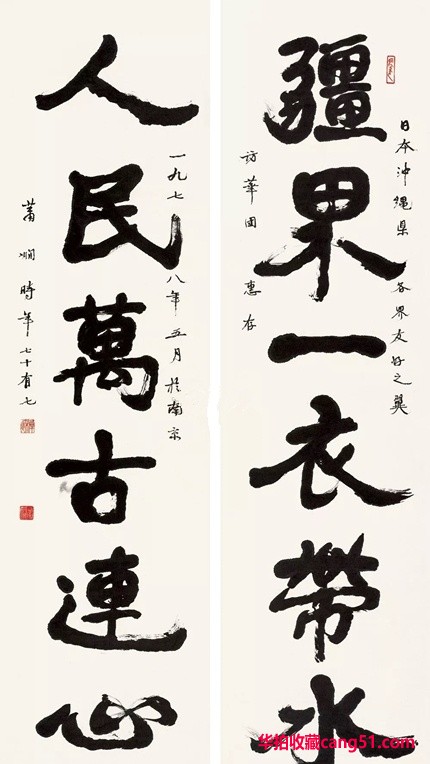 日本沖縄県各界友好之翼
疆界一衣帶水
訪華団惠存
一九七八年五月於南京
人民萬古連心
蕭嫻時年七十有七
华拍收藏cang51.com